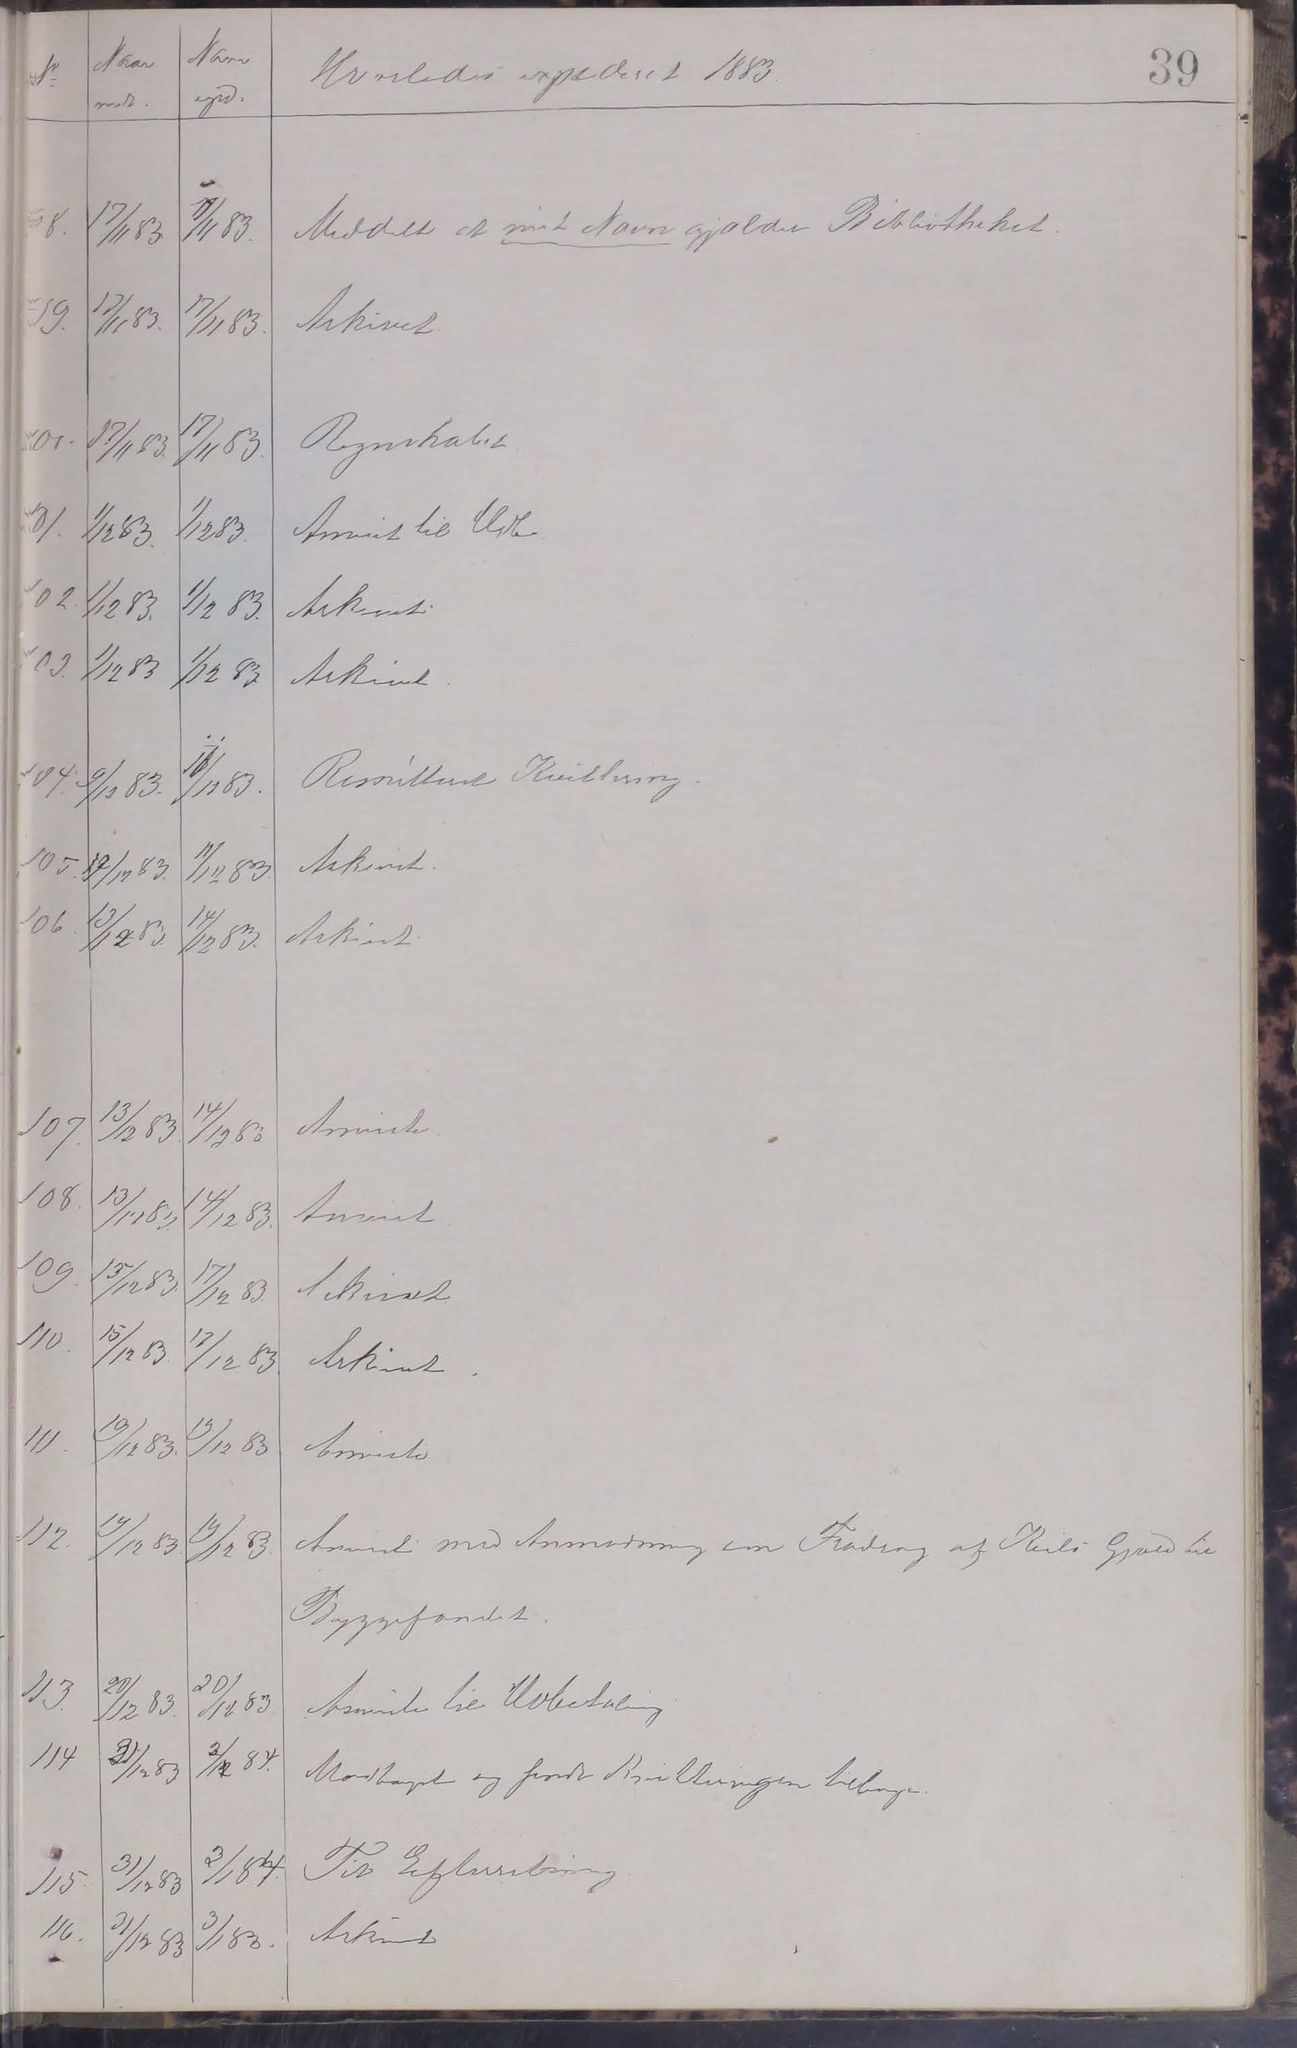 39
No Naar modt. Naar expd. Hvorledes expederet 1883.
8. 17/11 83. 17/11 83. Meddelt at mit Navn gjælder Bibliotheket.
9. 17/11 83. 17/11 83. Arkivet
17/11 83. 17/11 83. Regnskabet
1/12 83. 1/12 83. Anvist til Udb
02. 1/12 83. 1/12 83. Arkivet
03. 1/12 83 1/12 83 Arkivet.
04. 9/12 83. 83. Remitteret Kvittering.
105. 83. 11/12 83. Arkivet.
106. 13/12 83. 14/12 83. Arkivet.
107. 13/12 83. 14/12 83 Anviste.
108. 13/12 83. 14/12 83. Anvist
109. 15/12 83. 17/12 83. Arkivet
110. 15/12 83. 17/12 83. Arkivet.
111. 19/12 83. 19/12 83 Anviste
112. 19/12 83. 19/12 83. Anvist med Anmodning om af Gjæld til
Byggefondet.
113. 20/12 83. 20/12 83. Anviste til Udbetaling
114 31/12 83 84. Modtaget og sendt Kvitteringen tilbage.
115. 31/12 83 2/1 84. Til Efterretning
116. 31/12 83 3/1 83. Arkivet